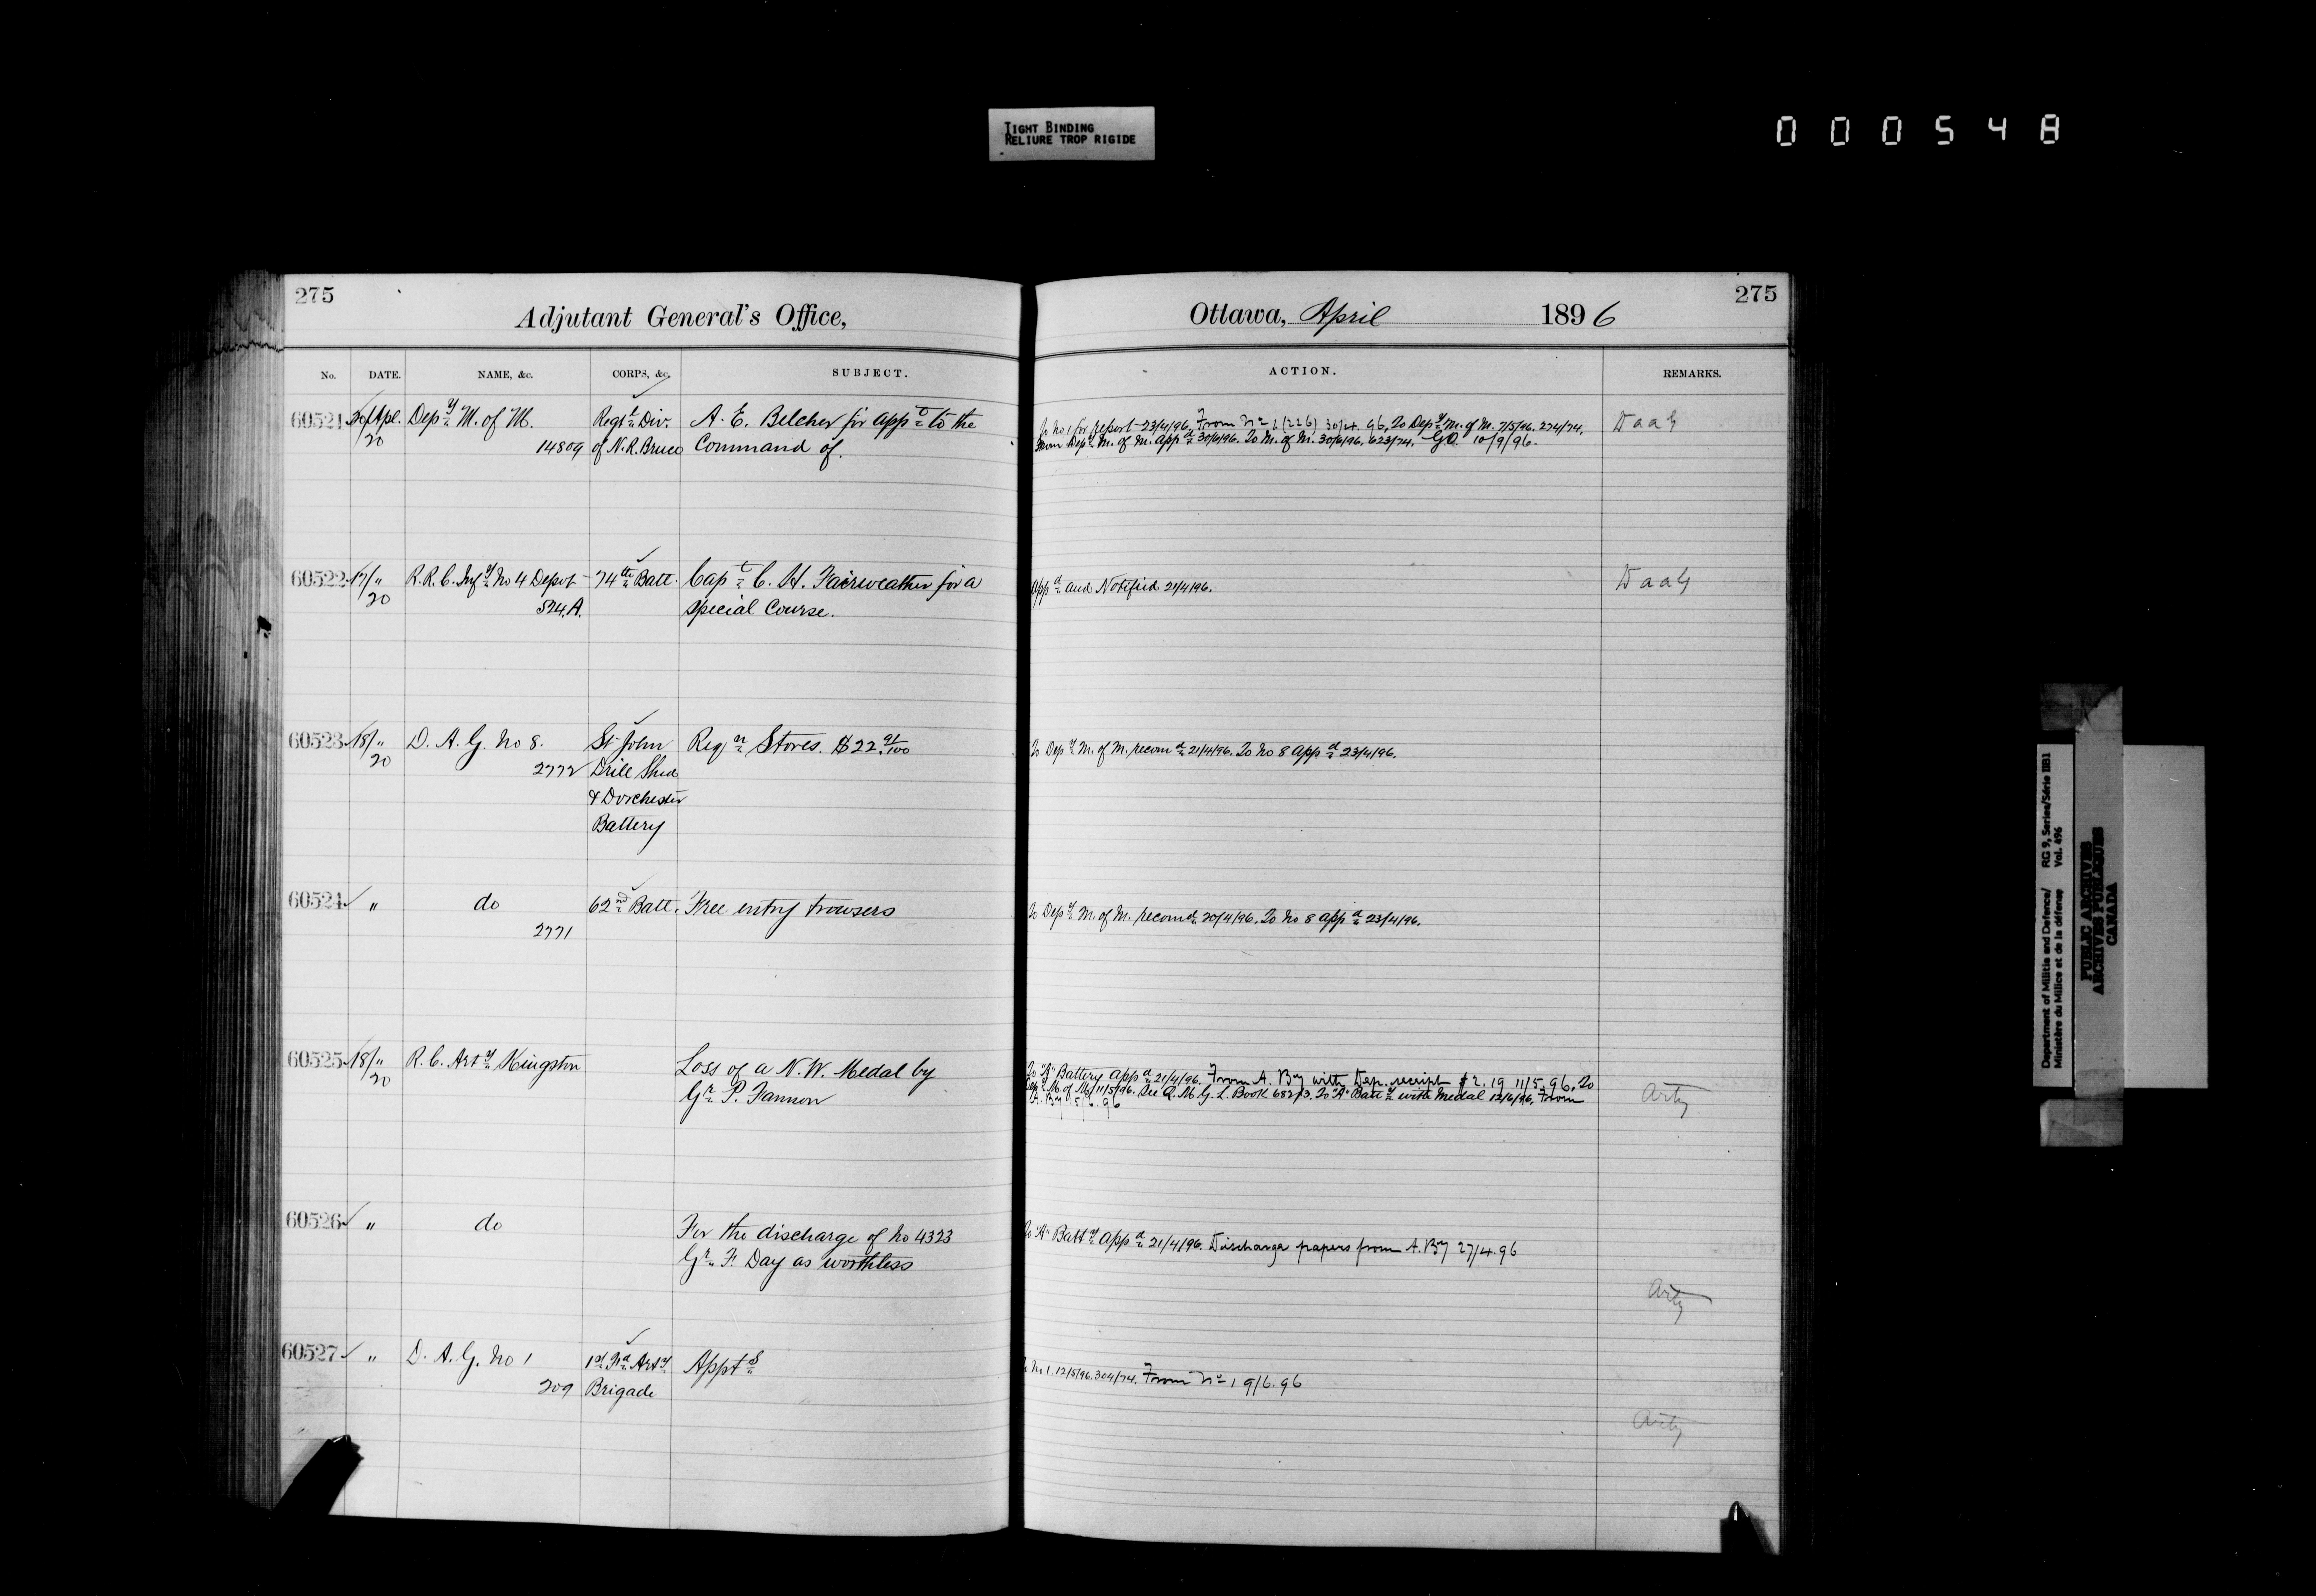 TIGHT BINDING
RELIURE TROP RIGIDE
000548
275
Adjutant General's Office,
No. DATE. NAME, &c. CORPS, &c. SUBJECT.
60521 20/Apl. Depy M. of M. Regtl Div. A. E. Belcher for appt to the
20 14809 of N.R. Bruce Command of.
60522 17/" R.R.C. Infy No 4 Depot 74th Batt. Capt C. H. Fairweather for a
20 524.A. special Course.
60523 18/" D. A. G. No 8. St John Reqn Stores. $22.91/100
20 2772 Drill Shed
& Dorchester
Battery
60524 " do 62nd Batt. Free entry trousers
2771
60525 18/" R.C. Arty Kingston Loss of a N.W. Medal by
20 Gr. P. Fannon
60526 " do For the discharge of No 4323
Gr. F. Day as worthless
60527 " D. A. G. No 1 1st Arty Appts
209 Brigade
275
Ottawa, April 1896
ACTION. REMARKS.
To No 1 for report 23/4/96. From No 1 (226) 30/4.96. To Depy M. of M. 7/5/96. 274/74. Daag
From Depy M. of M. appd 30/6/96. To M. of M. 30/6/96. 623/74. GO 10/9/96.
Appd and Notified 21/4/96. Daag
To Depy M. of M. recomd 21/4/96. To No 8 appd 23/4/96.
To Depy M. of M. recomd 20/4/96. To No 8 appd 23/4/96.
To "A" Battery appd 21/4/96. From A. By with Dep. receipt $2.19 11/5.96. To
Depy M. of M. 11/5/96. See Q.M.G.L. Book 682/3. To "A" Batty with Medal 12/6/96. From Arty
A. By 15/6.96
To "A" Batty Appd 21/4/96. Discharge papers from A. By 27/4.96
Arty
No 1. 12/5/96. 304/74. From No 1 9/6.96
Arty
Department of Militia and Defence/ RG 9, Series/Série IIB1
Ministère du Milice et de la défense Vol. 496
PUBLIC ARCHIVES
ARCHIVES PUBLIQUES
CANADA